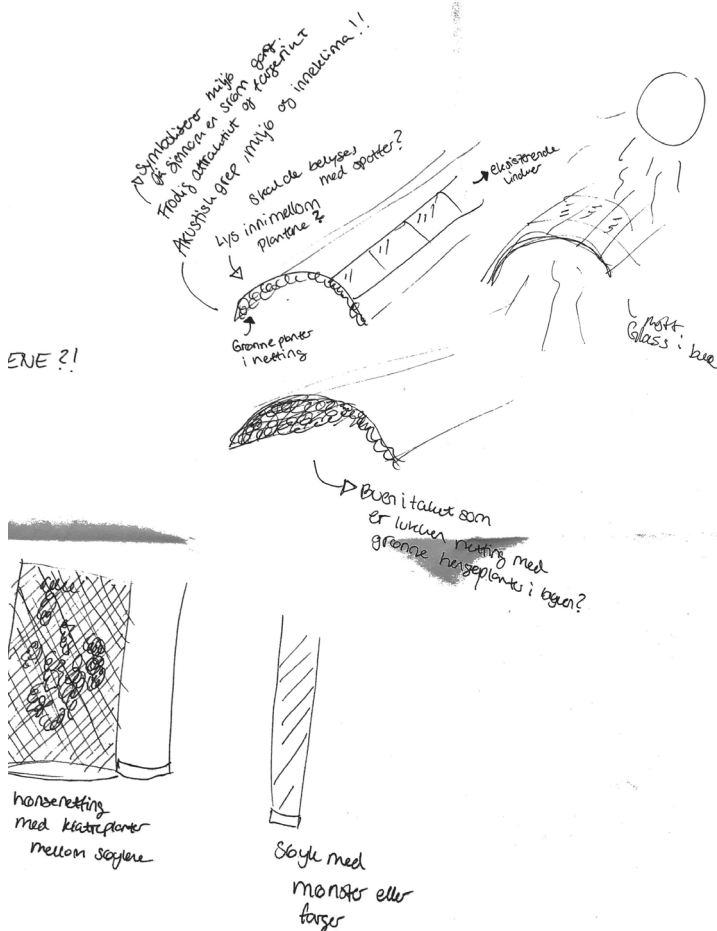 Symboliserer miljø
på sinnom en srøm gang.
Frodig attraktivt og fargerikt
Akustisk grep, miljø og inneklima!!
Skal de belyses
med spotter?
Lys innimellom
plantene?
eksisterende
vinduer
Grønne planter
i netting
mott
Glass i bue
ENE?!
Buen i taket som
er lukken netting med
grønne hengeplanter i buen?
hønsenetting
med klatreplanter
mellom søylene
Søyle med
mønster eller
farger